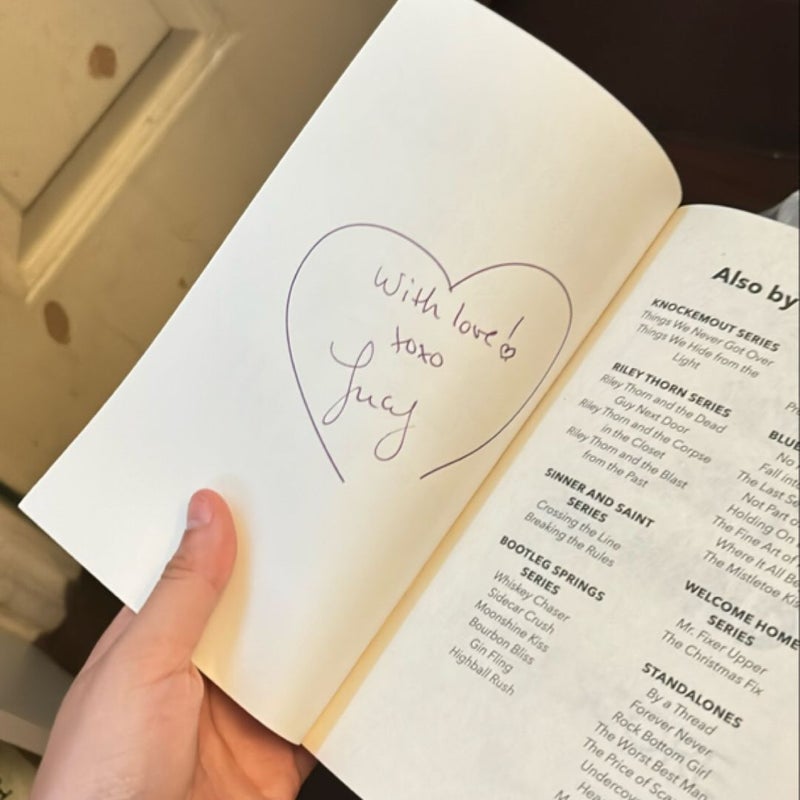 With love!
xoxo
Lucy
Also by
KNOCKEMOUT SERIES
Things We Never Got Over
Things We Hide from the
Light
RILEY THORN SERIES
Riley Thorn and the Dead
Guy Next Door
Riley Thorn and the Corpse
in the Closet
Riley Thorn and the Blast
from the Past
SINNER AND SAINT
SERIES
Crossing the Line
Breaking the Rules
BOOTLEG SPRINGS
SERIES
Whiskey Chaser
Sidecar Crush
Moonshine Kiss
Bourbon Bliss
Gin Fling
Highball Rush
No
Fall
The Last
Not Part
Holding On
The Fine Art of
Where It All
The Mistletoe
WELCOME HOME
SERIES
Mr. Fixer Upper
The Christmas Fix
STANDALONES
By a Thread
Forever Never
Rock Bottom Girl
The Worst Best Man
The Price of